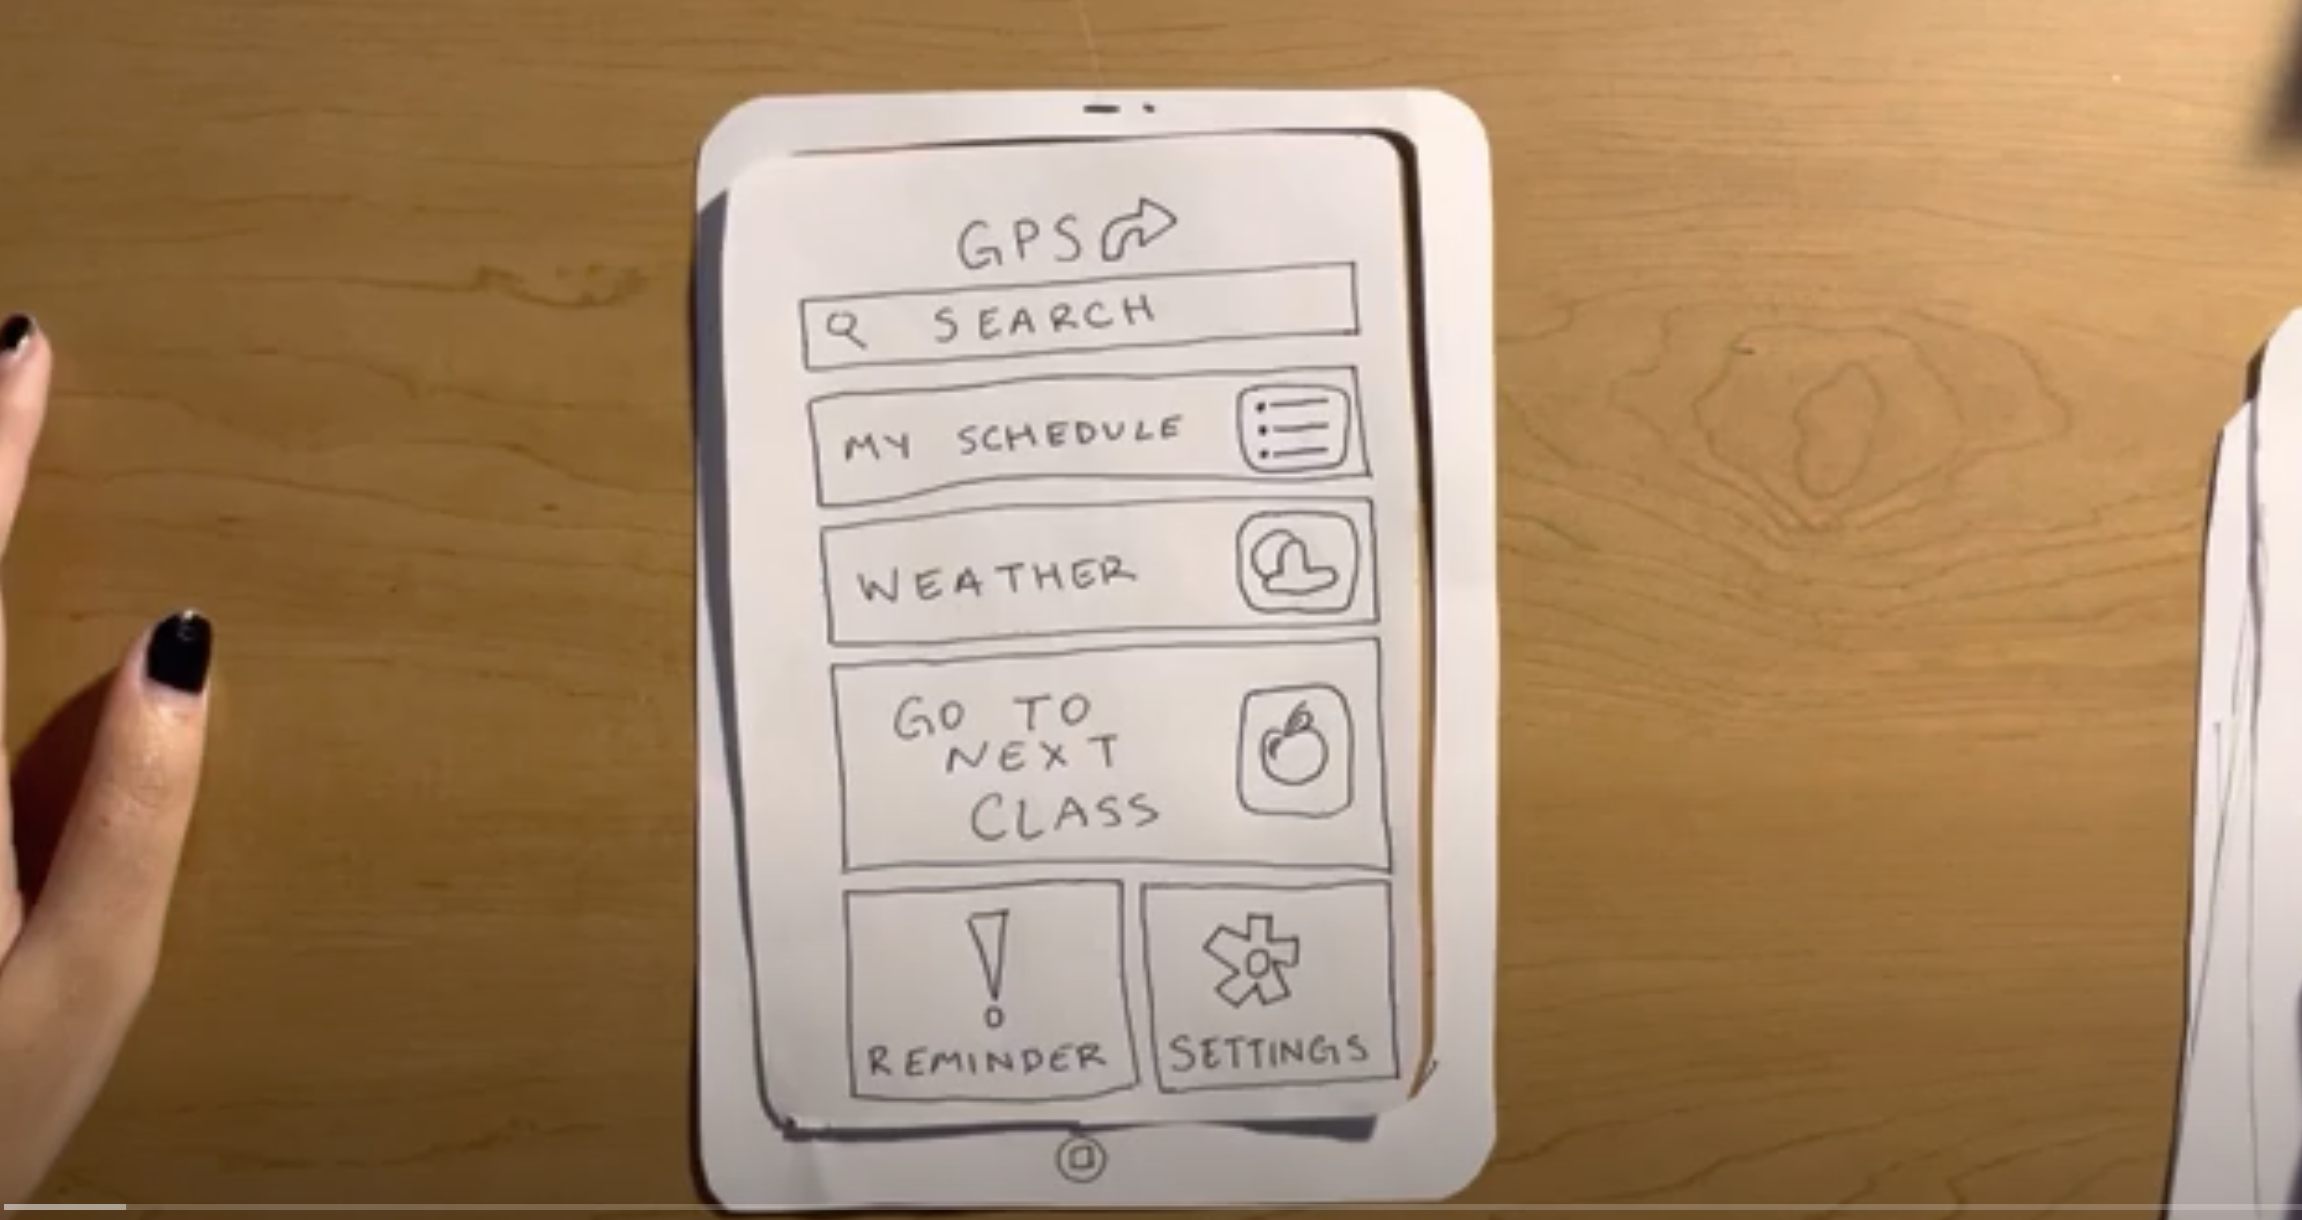 GPS
SEARCH
MY SCHEDULE
WEATHER
GO TO
NEXT
CLASS
REMINDER
SETTINGS